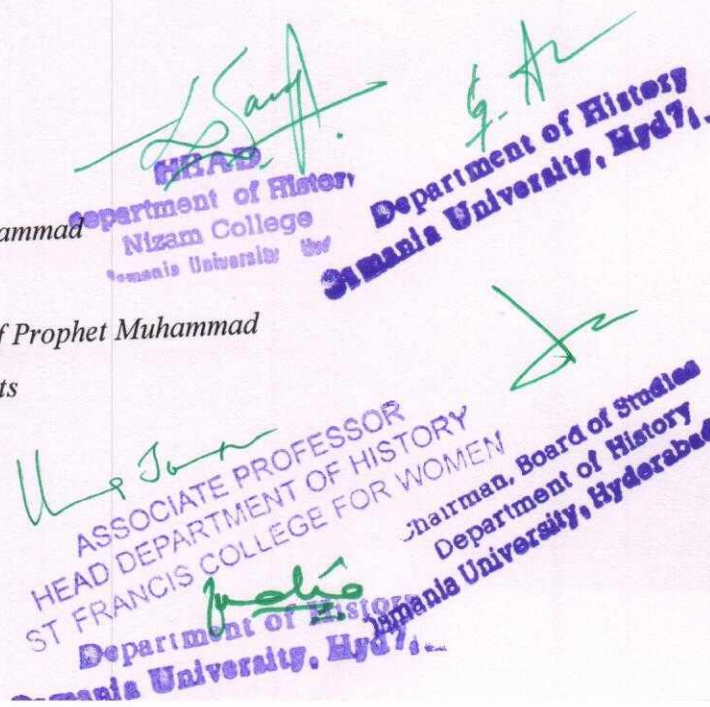 HEAD
epartment of History
Nizam College
smania University
Department of History
Osmania University, Hyd 7.
ammad
f Prophet Muhammad
ts
ASSOCIATE PROFESSOR
HEAD DEPARTMENT OF HISTORY
ST FRANCIS COLLEGE FOR WOMEN
hairman, Board of Studies
Department of History
Osmania University, Hyderabad
Department of History
Osmania University, Hyd 7.